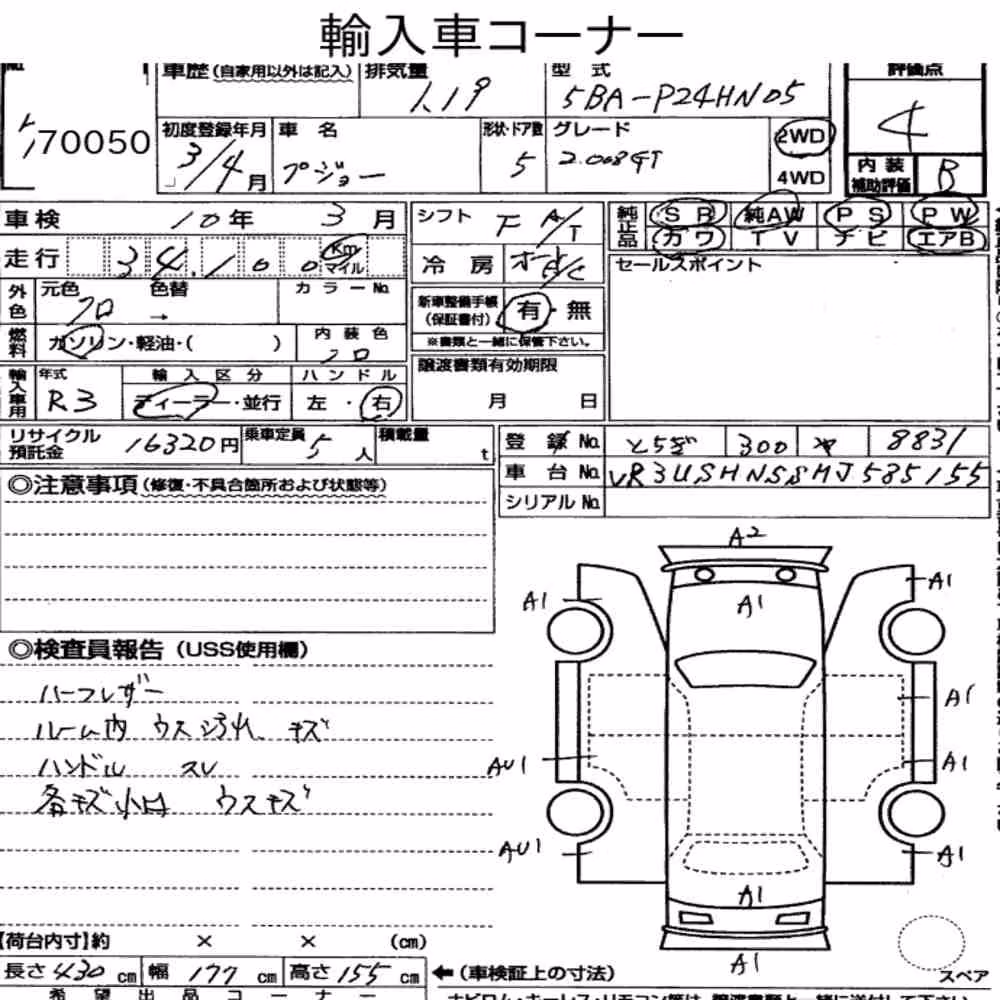 輸入車コーナー
車歴 (自家用以外は記入) 排気量 1.19 型式 5BA-P24HN05 評価点 4
70050
初度登録年月 3/4月 車名 プジョー 形状・ドア数 5 グレード 2.008GT 2WD 4WD
内装補助評価 B
車検 10年 3月 シフト F A/T 純正品 SR 純AW PS PW
カワ TV ナビ エアB
走行 34,100 Km マイル 冷房 オート A/C セールスポイント
外色 元色 クロ 色替 → カラーNo. 新車整備手帳 (保証書付) 有・無
※書類と一緒に保管下さい。
燃料 ガソリン・軽油・( ) 内装色 クロ 譲渡書類有効期限
月 日
輸入車用 年式 R3 輸入区分 ディーラー・並行 ハンドル 左・右
リサイクル預託金 16320円 乗車定員 5人 積載量 t 登録No. とちぎ 300 8831
車台No. VR3USHNSSMJ585155
シリアルNo.
◎注意事項 (修復・不具合箇所および状態等)
A2
A1 A1 A1
◎検査員報告 (USS使用欄)
ハーフレザー
A1
ルーム内 ウス汚れ、キズ
ハンドル スレ
AU1 A1
各キズ小凹 ウスキズ
AU1 A1
A1
【荷台内寸】約 × × (cm)
A1
長さ 430 cm 幅 177 cm 高さ 155 cm ←(車検証上の寸法) スペア
希望出品コーナー
ナビロム・キーレス・リモコン等は、譲渡書類と一緒に送付して下さい。